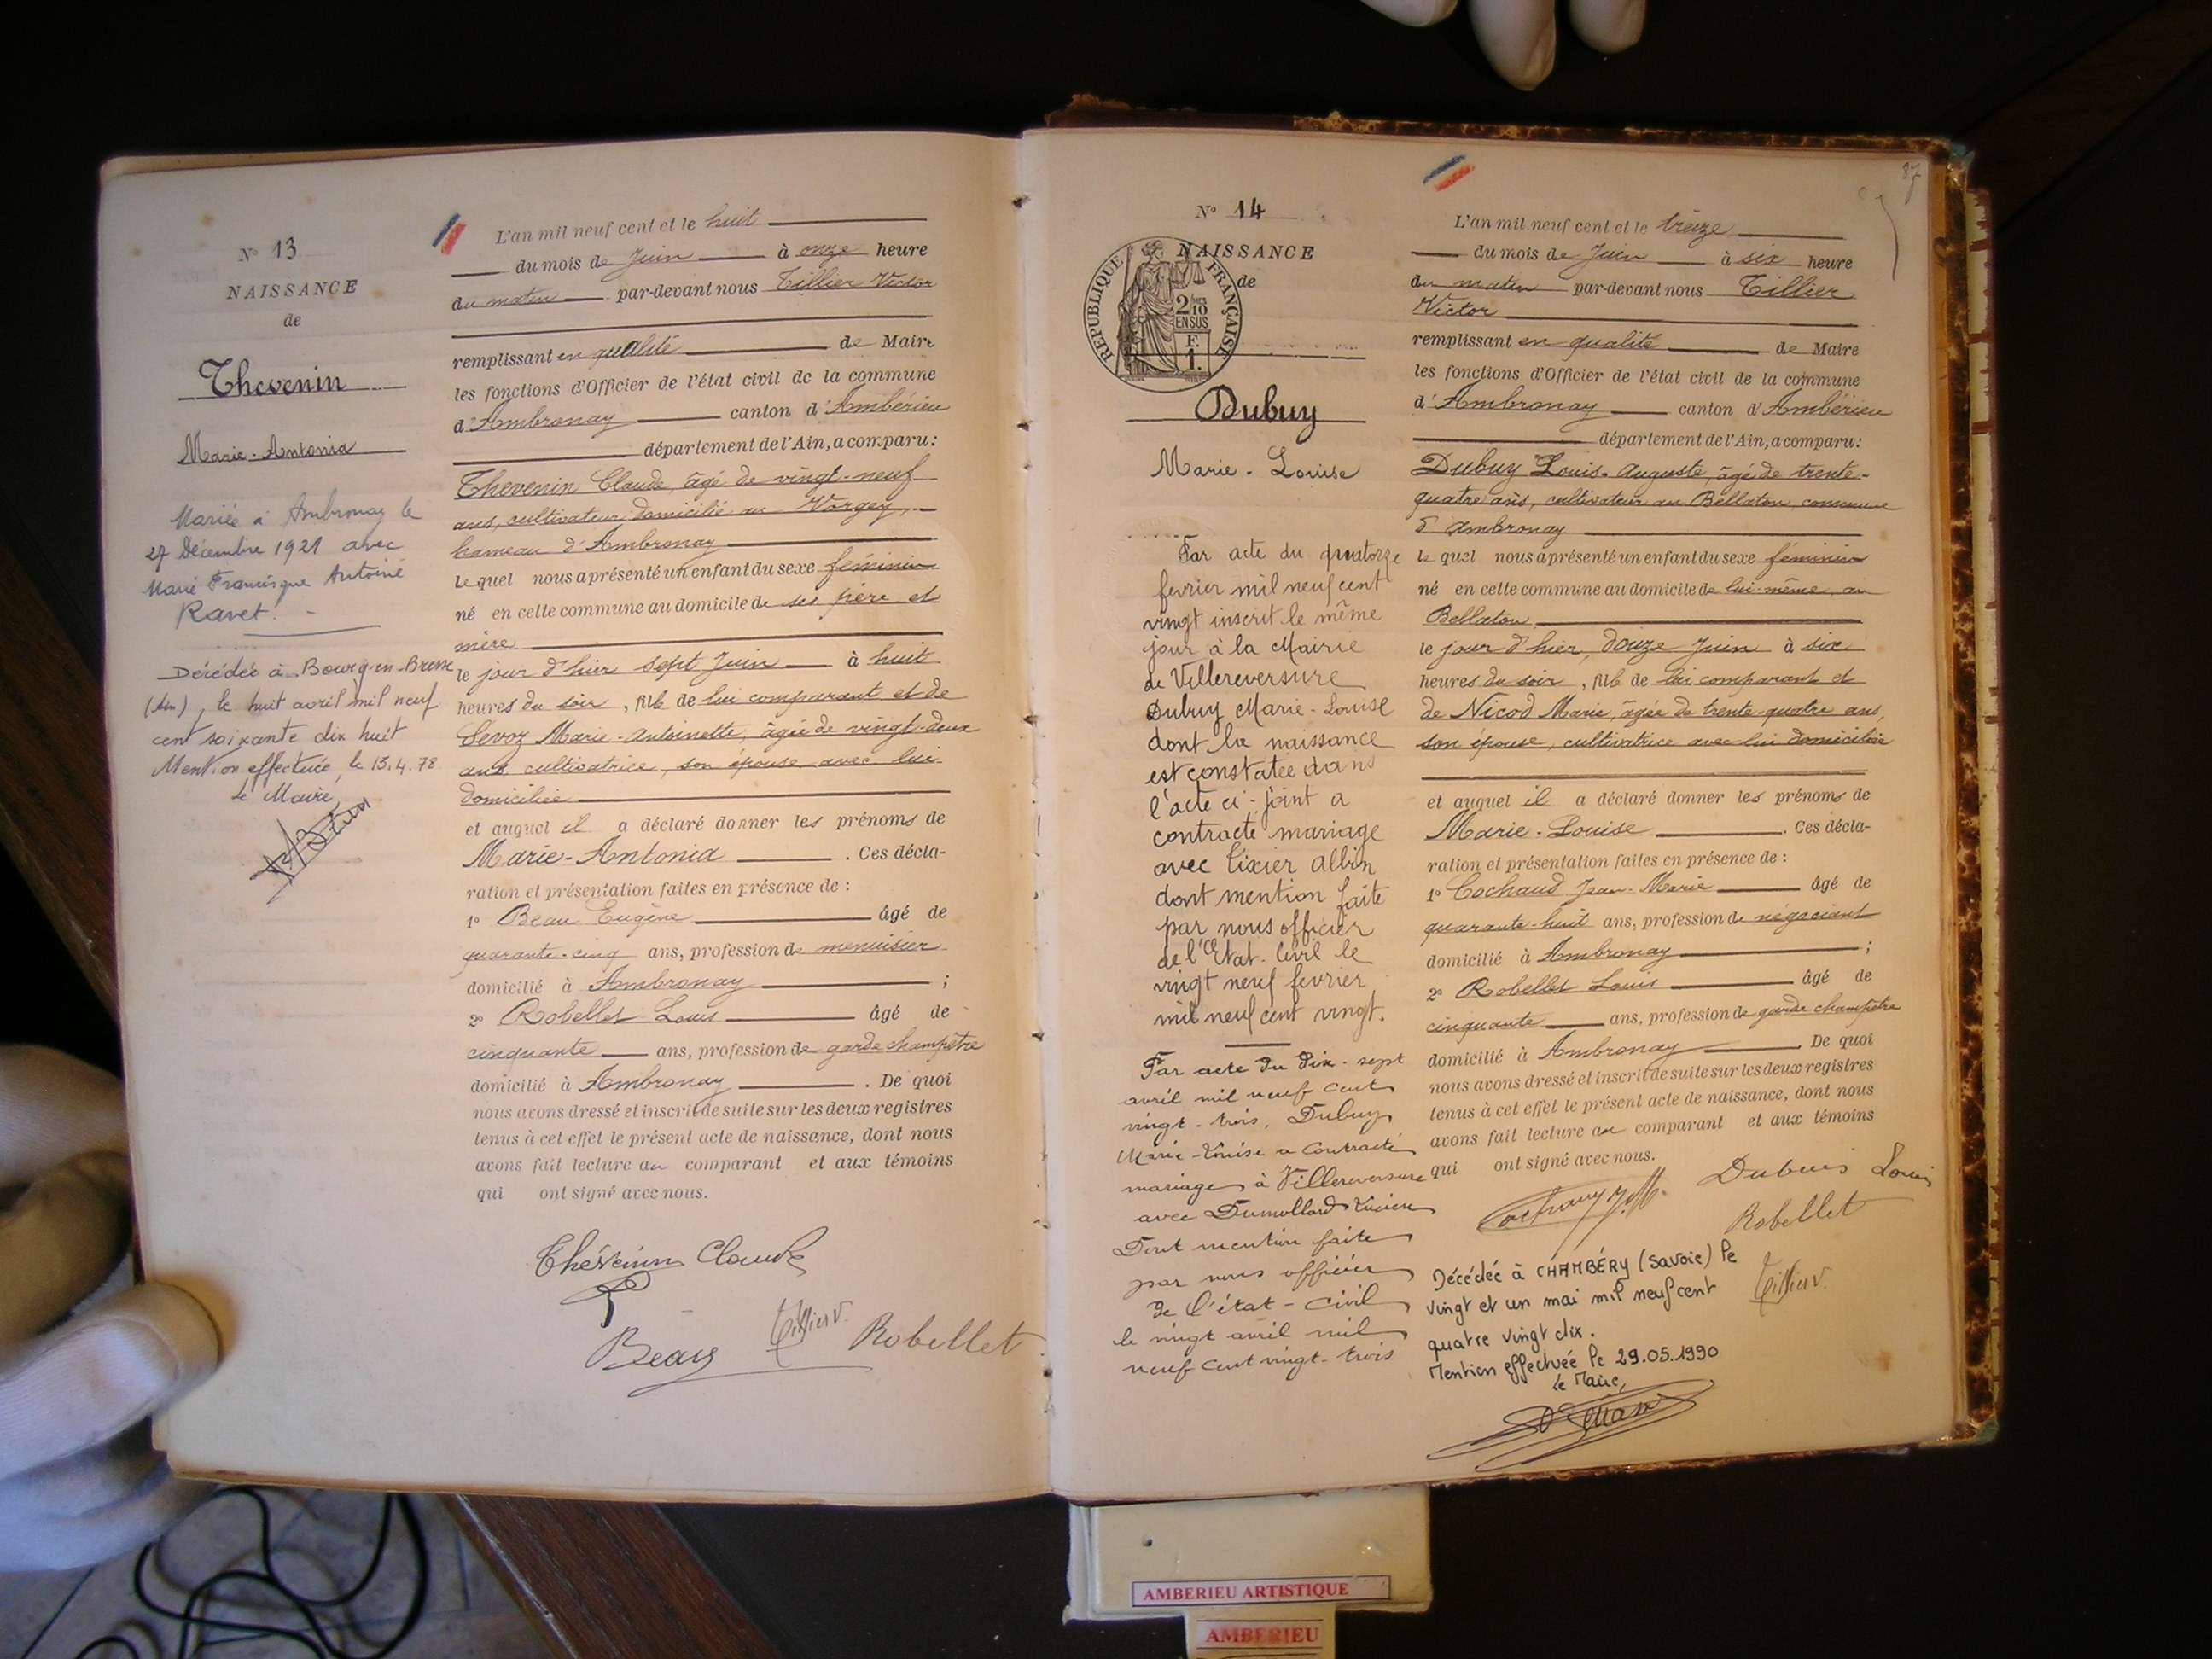 N° 13
NAISSANCE
de
Thevenin
Marie-Antonia
Mariée à Ambronay le
27 Décembre 1921 avec
Marie Francisque Antoine
Ravet. -
Décédée à Bourg-en-Bresse
(Ain), le huit avril mil neuf
cent soixante dix huit
Mention effectuée, le 13.4.78
Le Maire,
L'an mil neuf cent et le huit
du mois de Juin à onze heure
du matin par-devant nous Tillier Victor
remplissant en qualité de Maire
les fonctions d'Officier de l'état civil de la commune
d'Ambronay canton d'Ambérieu
département de l'Ain, a comparu:
Thevenin Claude, âgé de vingt-neuf
ans, cultivateur domicilié au Vorgey,
hameau d'Ambronay
lequel nous a présenté un enfant du sexe féminin
né en cette commune au domicile de ses père et
mère
le jour d'hier sept Juin à huit
heures du soir, fille de lui comparant et de
Sevoz Marie-Antoinette, âgée de vingt-deux
ans, cultivatrice, son épouse avec lui
domiciliée
et auquel il a déclaré donner les prénoms de
Marie-Antonia. Ces décla-
ration et présentation faites en présence de :
1° Beau Eugène âgé de
quarante-cinq ans, profession de menuisier
domicilié à Ambronay ;
2° Robellet Louis âgé de
cinquante ans, profession de garde champêtre
domicilié à Ambronay. De quoi
nous avons dressé et inscrit de suite sur les deux registres
tenus à cet effet le présent acte de naissance, dont nous
avons fait lecture au comparant et aux témoins
qui ont signé avec nous.
Thévenin Claude
Tillier V.
Beau Robellet
87
N° 14
NAISSANCE
de
REPUBLIQUE FRANÇAISE
2/10
EN SUS
F.
1.
Dubuy
Marie-Louise
Par acte du quatorze
fevrier mil neuf cent
vingt inscrit le même
jour à la Mairie
de Villereversure
Dubuy Marie-Louise
dont la naissance
est constatée dans
l'acte ci-joint a
contracté mariage
avec Lixier Albin
dont mention faite
par nous officier
de l'Etat-Civil le
vingt neuf fevrier
mil neuf cent vingt.
Par acte du Dix-sept
avril mil neuf cent
vingt-trois, Dubuy
Marie-Louise a contracté
mariage à Villereversure
avec Dumollard Lucien
Dont mention faite
par nous officier
de l'état-civil
le vingt avril mil
neuf cent vingt-trois
L'an mil neuf cent et le treize
du mois de Juin à six heure
du matin par-devant nous Tillier
Victor
remplissant en qualité de Maire
les fonctions d'Officier de l'état civil de la commune
d'Ambronay canton d'Ambérieu
département de l'Ain, a comparu:
Dubuy Louis-Auguste, âgé de trente-
quatre ans, cultivateur au Bellaton, commune
d'Ambronay
lequel nous a présenté un enfant du sexe féminin
né en cette commune au domicile de lui-même, au
Bellaton
le jour d'hier, douze Juin à six
heures du soir, fille de lui comparant et
de Nicod Marie, âgée de trente-quatre ans,
son épouse, cultivatrice avec lui domiciliée
et auquel il a déclaré donner les prénoms de
Marie-Louise. Ces décla-
ration et présentation faites en présence de :
1° Cochaud Jean-Marie âgé de
quarante-huit ans, profession de négociant
domicilié à Ambronay ;
2° Robellet Louis âgé de
cinquante ans, profession de garde champêtre
domicilié à Ambronay. De quoi
nous avons dressé et inscrit de suite sur les deux registres
tenus à cet effet le présent acte de naissance, dont nous
avons fait lecture au comparant et aux témoins
qui ont signé avec nous.
Dubuis Louis
Robellet
Tillier V.
Décédée à CHAMBÉRY (Savoie) le
vingt et un mai mil neuf cent
quatre vingt dix.
Mention effectuée le 29.05.1990
Le Maire,
AMBERIEU ARTISTIQUE
AMBERIEU